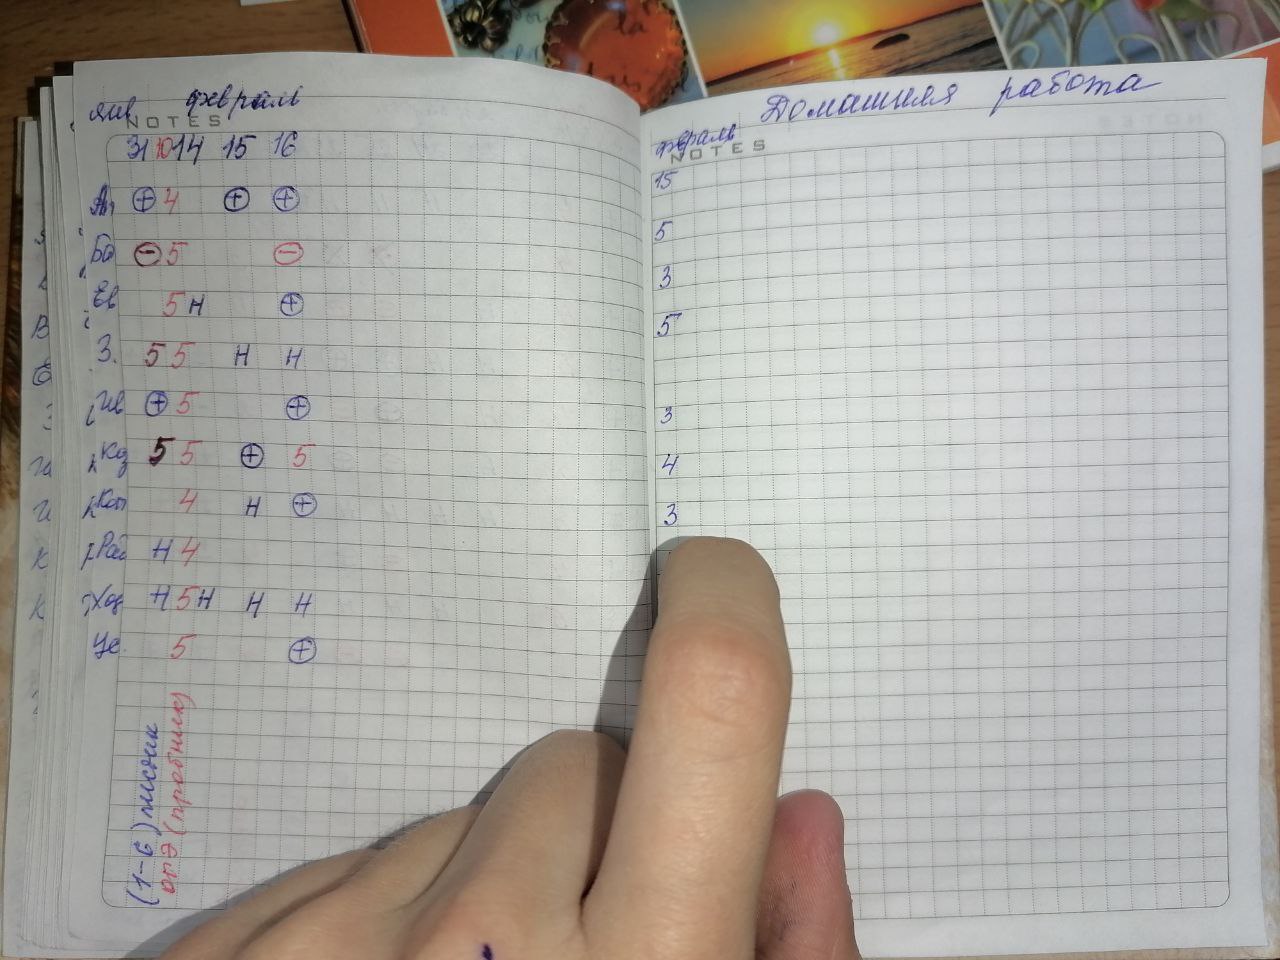 янв февраль
NOTES
31 10 14 15 16
Ан ⊕ 4 ⊕ ⊕
Бо ⊖ 5 ⊖
Ев 5 н ⊕
З. 5 5 н н
Ив ⊕ 5 ⊕
Код 5 5 ⊕ 5
Коп 4 н ⊕
Рад н 4
Ход н 5 н н н
Це. 5 ⊕
(1-6) писник
огэ (пробник)
Домашняя работа
февраль
NOTES
15
5
3
5
3
4
3